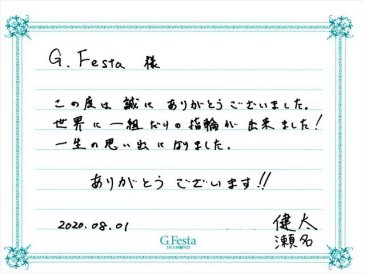 G.Festa 様
この度は誠にありがとうございました。
世界に一組だけの指輪が出来ました!
一生の思い出になりました。
ありがとうございます!!
2020.08.01
健太
瀬名
G.Festa
DIAMOND